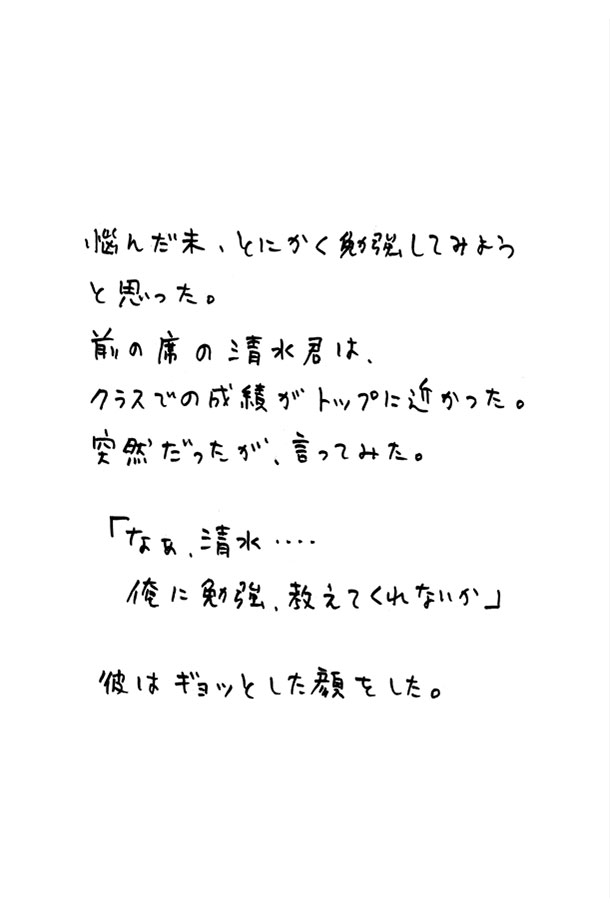 悩んだ末、とにかく勉強してみよう
と思った。
前の席の清水君は、
クラスでの成績がトップに近かった。
突然だったが、言ってみた。
「なぁ、清水‥‥
俺に勉強、教えてくれないか」
彼はギョッとした顔をした。